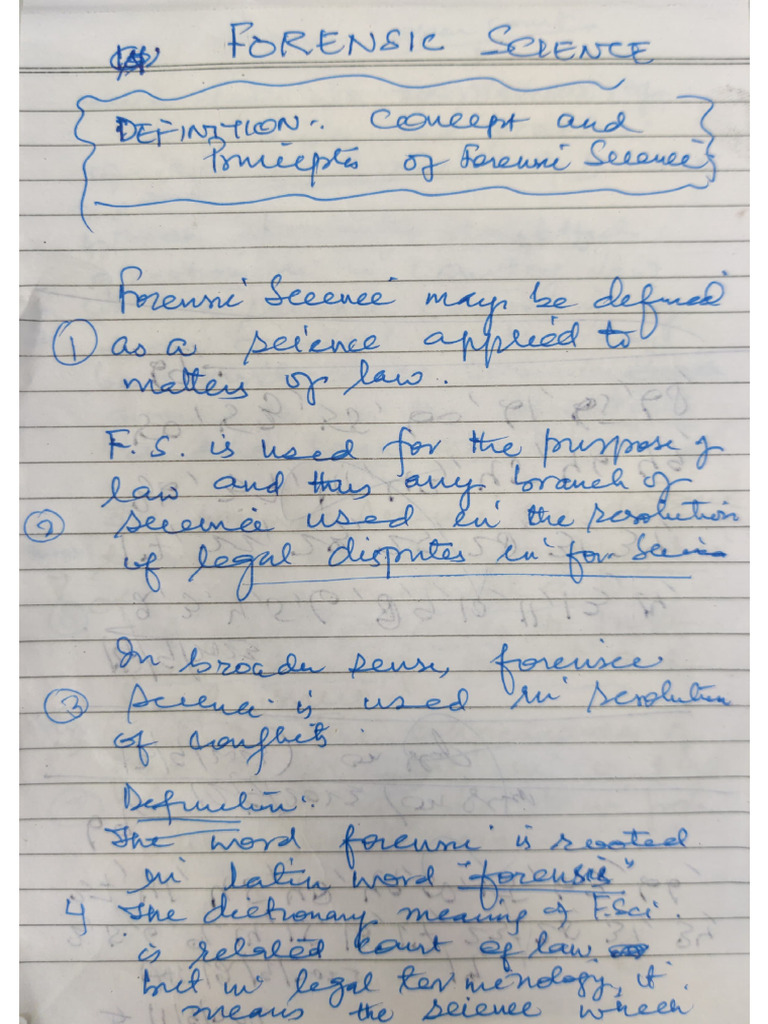 FORENSIC SCIENCE
DEFINITION:. Concept and
Principles of Forensic Science
Forensic Science may be defined
① as a science applied to
matters of law.
F.S. is used for the purpose of
law and thus any branch of
② science used in the resolution
of legal disputes in for Scie
In broader sense, forensic
③ science is used in resolution
of conflicts.
Definition:
The word forensic is rooted
in latin word "forensis"
4) The dictionary meaning of F.Sci.
is related Court of law
but in legal terminology, it
means the science which